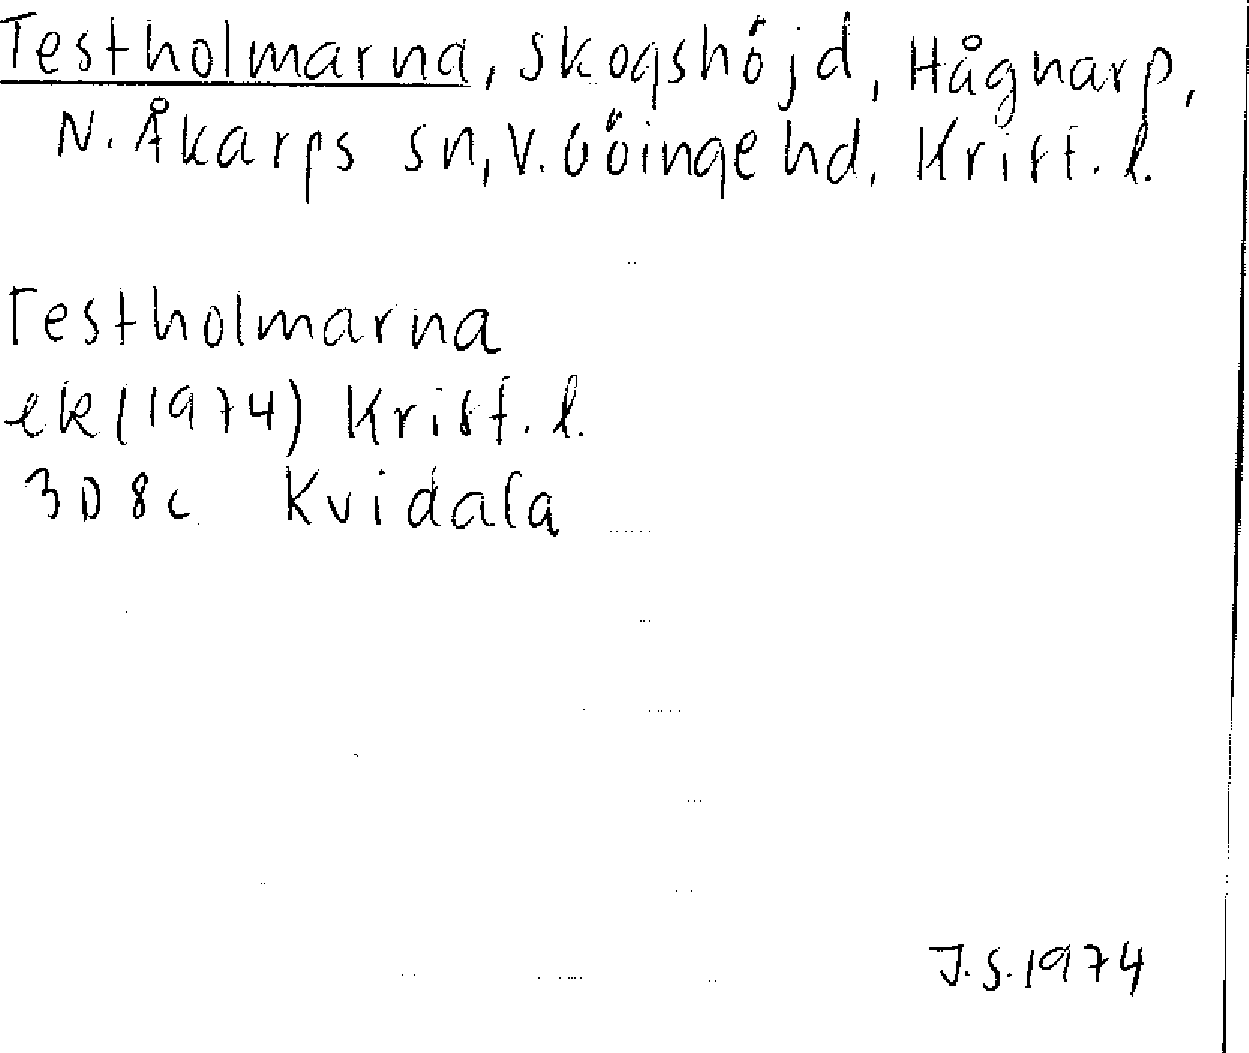 Testholmarna, skogshöjd, Hågnarp,
N. Åkarps sn, V. Göinge hd, Krist. l.
Testholmarna
ek (1974) Krist. l.
3D 8c Kvidala
J.S. 1974